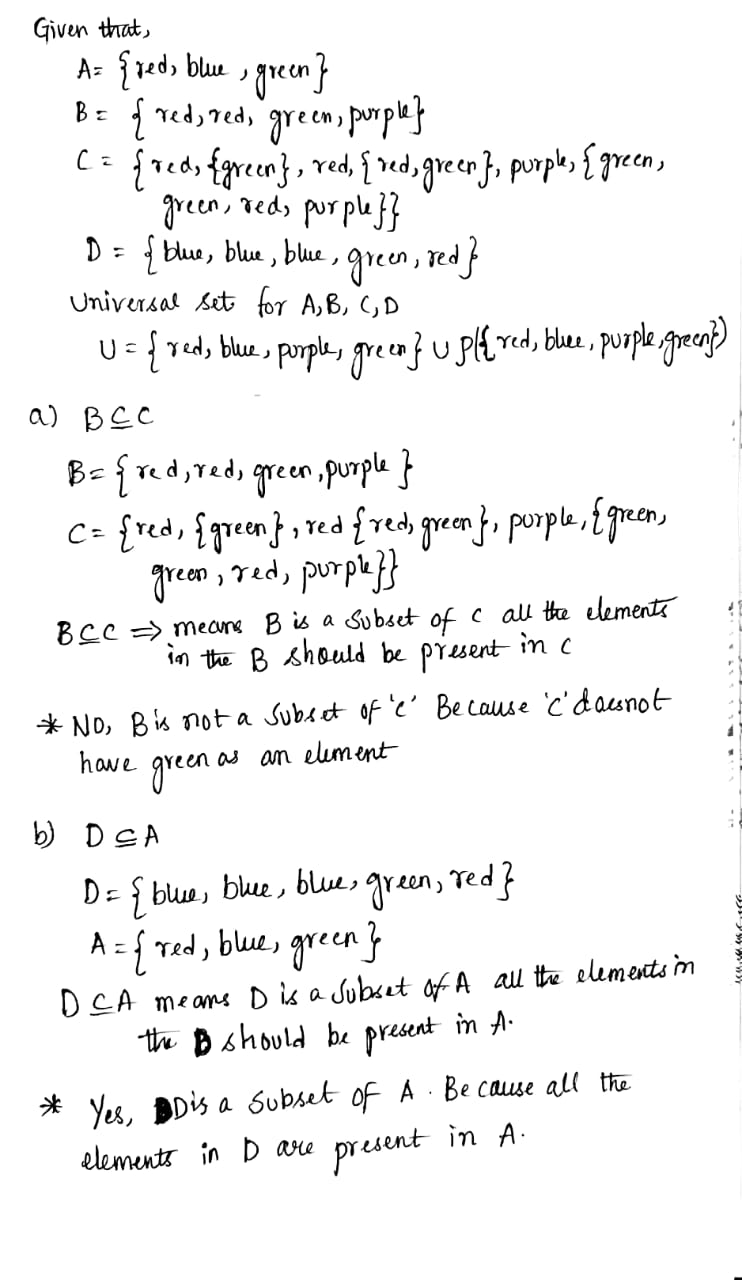 Given that,
A= {red, blue, green}
B = { red, red, green, purple}
C = {red, {green}, red, {red, green}, purple, {green,
green, red, purple}}
D = {blue, blue, blue, green, red}
Universal set for A, B, C, D
U = {red, blue, purple, green} ∪ P({red, blue, purple, green})
a) B ⊆ C
B = {red, red, green, purple }
C = {red, {green}, red {red, green}, purple, {green,
green, red, purple}}
B ⊆ C ⇒ means B is a subset of C all the elements
in the B should be present in C
* No, B is not a subset of 'C' Because 'C' doesnot
have green as an element
b) D ⊆ A
D = {blue, blue, blue, green, red}
A = {red, blue, green}
D ⊆ A means D is a subset of A all the elements in
the D should be present in A.
* Yes, D is a subset of A. Because all the
elements in D are present in A.